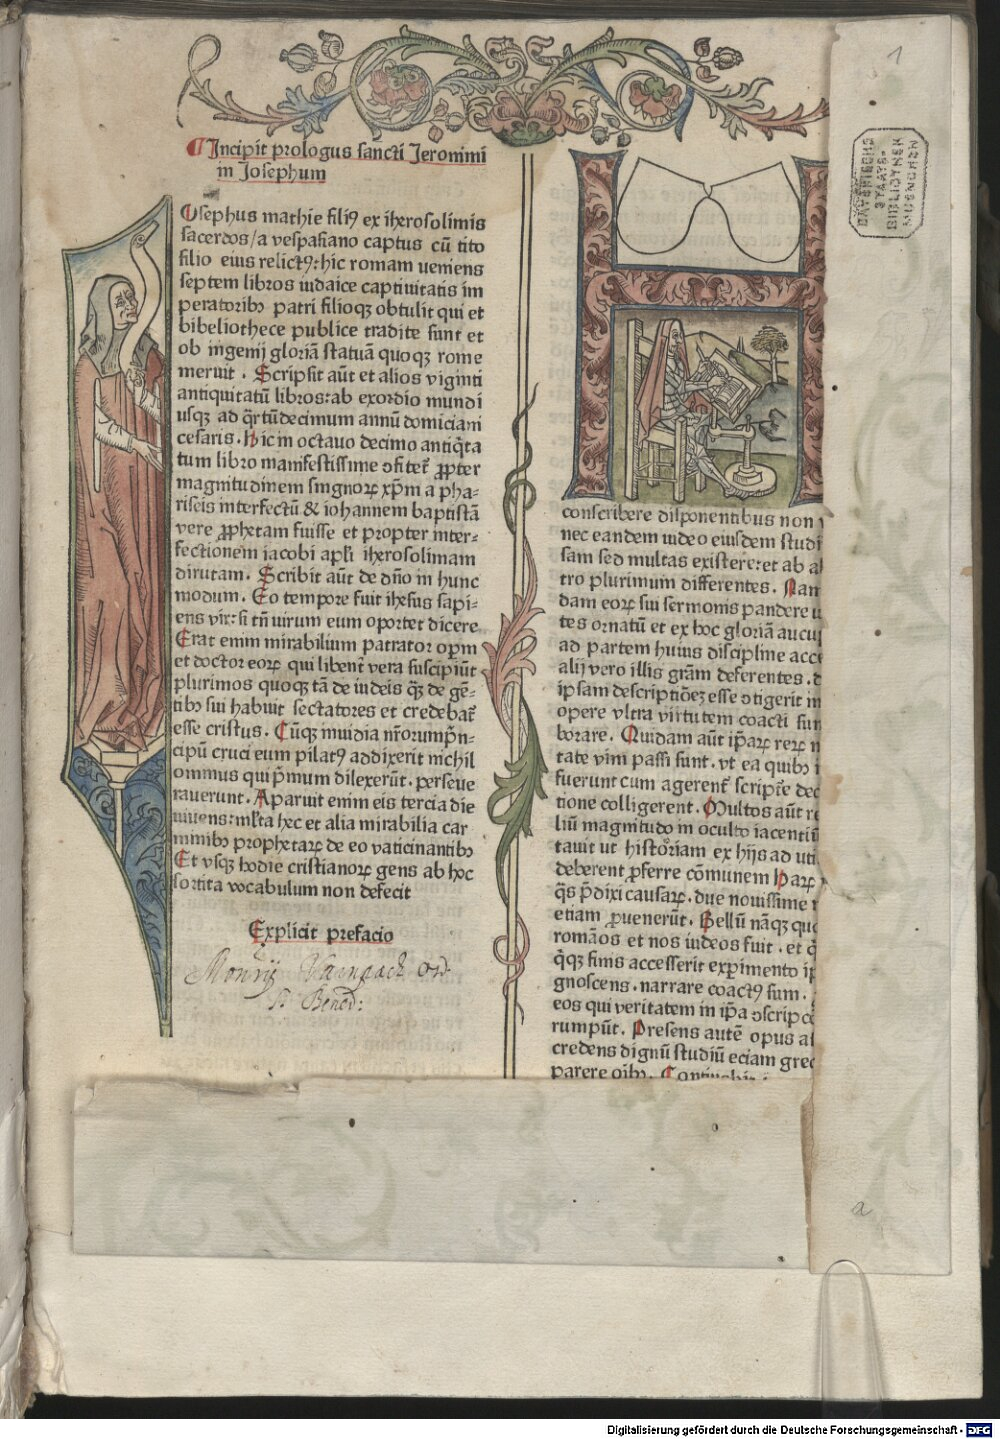 Incipit prologus sancti Jeronimi
in Josephum
Osephus mathie filiꝰ ex iherosolimis
sacerdos/a vespasiano captus cū tito
filio eius relictꝰ: hic romam veniens
septem libros iudaice captiuitatis im
peratoribꝫ patri filioqꝫ obtulit qui et
bibeliothece publice tradite sunt et
ob ingenij gloriā statuā quoqꝫ rome
meruit . Scripsit aūt et alios viginti
antiquitatū libros: ab exordio mundi
usqꝫ ad q̄rtūdecimum annū domiciani
cesaris . Hic in octauo decimo antiq̄ta
tum libro manifestissime ↄfitet᷑ ꝓpter
magnitudinem signoꝝ xp̄m a pha⸗
riseis interfectū & iohannem baptistā
vere ꝓphetam fuisse et propter inter⸗
fectionem iacobi apl̄i iherosolimam
dirutam . Scribit aūt de dn̄o in hunc
modum . Eo tempore fuit ihesus sapi⸗
ens vir: si tn̄ uirum eum oportet dicere
Erat enim mirabilium patrator oꝑm
et doctor eoꝝ qui libent᷑ vera suscipiūt
plurimos quoqꝫ tā de iudeis q̄ꝫ de gē⸗
tibꝫ sui habuit sectatores et credebat᷑
esse cristus . Cūqꝫ inuidia nr̄orum p̄n⸗
cipū cruci eum pilatꝰ addixerit nichil
ominus qui p̄mum dilexerūt . perseue
rauerunt . Aparuit enim eis tercia die
uiuens: ml̄ta hec et alia mirabilia car
minibꝫ prophetaꝝ de eo vaticinantibꝫ
Et vsqꝫ hodie cristianoꝝ gens ab hoc
sortita vocabulum non defecit
Explicit prefacio
Monrij Ord.
S. Bened:
conscribere disponentibus non
nec eandem uideo eiusdem studi
sam sed multas existere: et ab a
tro plurimum differentes . Nam
dam eoꝝ sui sermonis pandere u
tes ornatū et ex hoc gloriā aucu
ad partem huius discipline acce
alij vero illis gr̄am deferentes . d
ipsam descriptiōeꝫ esse ↄtigerit in
opere vltra virtutem coacti sun
borare . Quidam aūt ip̄aꝝ reꝝ n
tate vim passi sunt . vt ea quibꝫ i
fuerunt cum agerent᷑ script᷑e dec
tione colligerent . Multos aūt re
liū magnitudo in oculto iacentiū
tauit ut historiam ex hijs ad uti
deberent ꝓferre cōmunem Haꝝ
q̄s p̄dixi causaꝝ . due nouissime
etiam ꝓuenerūt . Bellū nāqꝫ quo
romāos et nos iudeos fuit . et q̄
q̄qꝫ finis accesserit exꝑimento ip
gnoscens . narrare coactꝰ sum .
eos qui veritatem in ip̄a ↄscripc
rumpūt . Presens autē opus a
credens dignū studiū eciam grec
parere oībꝫ . Continebit
1
BAYERISCHE
STAATS-
BIBLIOTHEK
MUENCHEN
a
Digitalisierung gefördert durch die Deutsche Forschungsgemeinschaft - DFG